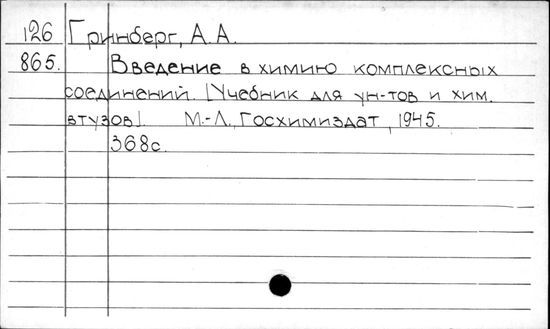 126 Гринберг, А.А.
865. Введение в химию комплексных
соединений. [Учебник для ун-тов и хим.
втузов]. М.-Л., Госхимиздат, 1945.
368с.